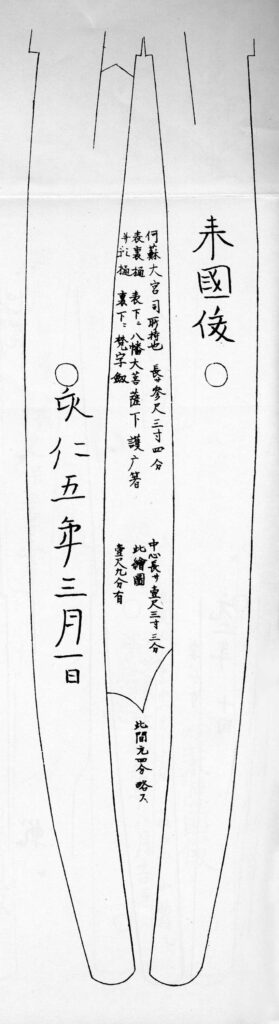 来國俊
何蘇大宮司所持也 長サ參尺三寸四分
表裏樋 表下ニ八幡大菩薩下護广箸
樋 裏下ニ梵字釼
中心長サ壹尺三寸三分
此繪圖
壹尺九分有
此間 四分略ス
永仁五年三月一日